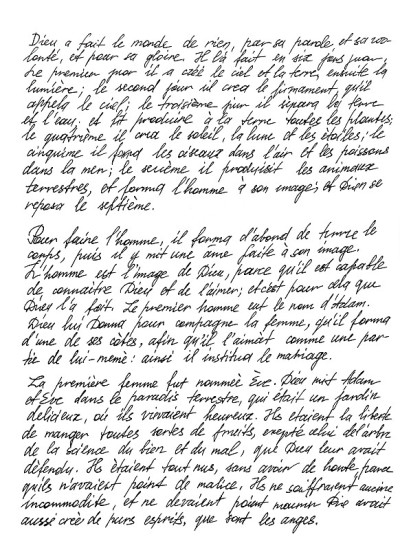 Dieu a fait le monde de rien, par sa parole, et sa vo-
lonté, et pour sa gloire. Il l'a fait en six jours,
Le premier jour il a créé le ciel et la terre, ensuite la
lumière; le second jour il crea le firmament, qu'il
appela le ciel; le troisième jour il sépara la terre
et l'eau, et fit produire à la terre toutes les plantes;
le quatrième il crea le soleil, la lune et les étoiles; le
cinquième il forma les oiseaux dans l'air et les poissons
dans la mer; le sixième il produisit les animaux
terrestres, et forma l'homme à son image; et Dieu se
reposa le septième.
Pour faire l'homme, il forma d'abord de terre le
corps, puis il y mit une ame faite à son image.
L'homme est l'image de Dieu, parce qu'il est capable
de connaitre Dieu et de l'aimer; et c'est pour cela que
Dieu l'a fait. Le premier homme eut le nom d'Adam.
Dieu lui Donna pour compagne la femme, qu'il forma
d'une de ses côtes, afin qu'il l'aimat comme une par-
tie de lui-memè: ainsi il institua le mariage.
La première femme fut nommeè Ève. Dieu mit Adam
et Ève dans le paradis terrestre, qui était un jardin
delicieux, où ils vivaient heureux. Ils étaient la liberte
de manger toutes sortes de fruits, exepté celui de l'arbre
de la science du bien et du mal, que Dieu leur avait
défendu. Ils étaient tout nus, sans avoir de honte, parce
qu'ils n'avaient point de malice. Ils ne souffraient aucune
incommodite, et ne devaient point mourir Dieu avait
aussi crèe de purs esprits, que sont les anges.